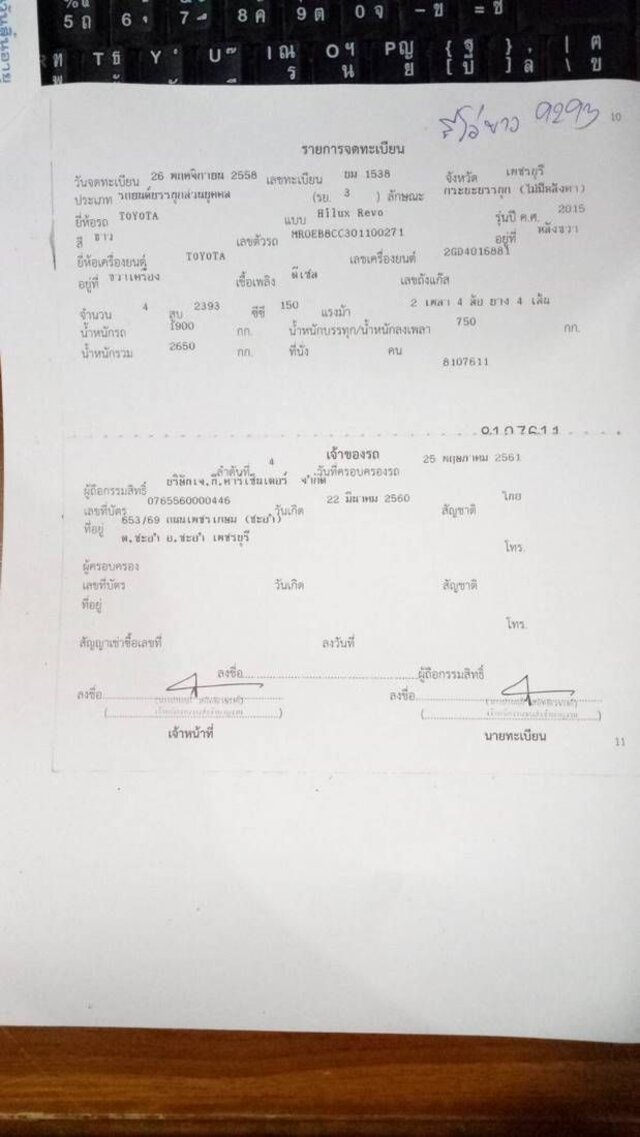 % ู
5 ถ 6 ุ 7 ึ 8 ค 9 ต 0 จ - ข = ช
T ธ Y U I ณ ร O ฯ น P ญ ย { [ บ } ] ล | \ ฅ ฃ
รีโว่ขาว 9293
10
รายการจดทะเบียน
วันจดทะเบียน 26 พฤศจิกายน 2558 เลขทะเบียน ยม 1538 จังหวัด เพชรบุรี
ประเภท รถยนต์บรรทุกส่วนบุคคล (รย. 3 ) ลักษณะ กระบะบรรทุก (ไม่มีหลังคา)
ยี่ห้อรถ TOYOTA แบบ Hilux Revo รุ่นปี ค.ศ. 2015
สี ขาว เลขตัวรถ MR0EB8CC301100271 อยู่ที่ หลังขวา
ยี่ห้อเครื่องยนต์ TOYOTA เลขเครื่องยนต์ 2GD4016881
อยู่ที่ ขวาเครื่อง เชื้อเพลิง ดีเซล เลขถังแก๊ส
จำนวน 4 สูบ 2393 ซีซี 150 แรงม้า 2 เพลา 4 ล้อ ยาง 4 เส้น
น้ำหนักรถ 1900 กก. น้ำหนักบรรทุก/น้ำหนักลงเพลา 750 กก.
น้ำหนักรวม 2650 กก. ที่นั่ง คน
8107611
8107611
เจ้าของรถ
ลำดับที่ 4 วันที่ครอบครองรถ 25 พฤษภาคม 2561
ผู้ถือกรรมสิทธิ์ บริษัทเจ.ที.คาร์เซ็นเตอร์ จำกัด
เลขที่บัตร 0765560000446 วันเกิด 22 มีนาคม 2560 สัญชาติ ไทย
ที่อยู่ 653/69 ถนนเพชรเกษม (ชะอำ)
ต.ชะอำ อ.ชะอำ เพชรบุรี
โทร.
ผู้ครอบครอง
เลขที่บัตร วันเกิด สัญชาติ
ที่อยู่
โทร.
สัญญาเช่าซื้อเลขที่ ลงวันที่
ลงชื่อ ผู้ถือกรรมสิทธิ์
ลงชื่อ ลงชื่อ
เจ้าหน้าที่ นายทะเบียน
11